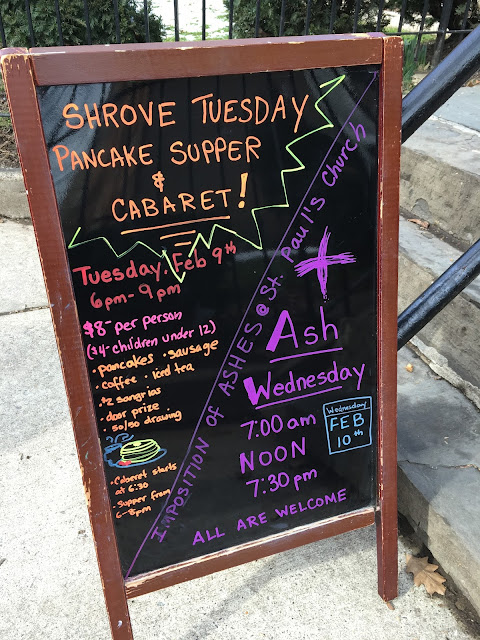 SHROVE TUESDAY
PANCAKE SUPPER
&
CABARET!
Tuesday, Feb 9th
6pm-9pm
$8- per person
($4-children under 12)
• pancakes • sausage
• coffee • iced tea
• $2 sangrias
• door prize
• 50/50 drawing
• Caberet starts
at 6:30
• Supper from
6-8pm
IMPOSITION OF ASHES @ St. Paul's Church
Ash
Wednesday
7:00 am
NOON
7:30 pm
Wednesday
FEB
10th
ALL ARE WELCOME